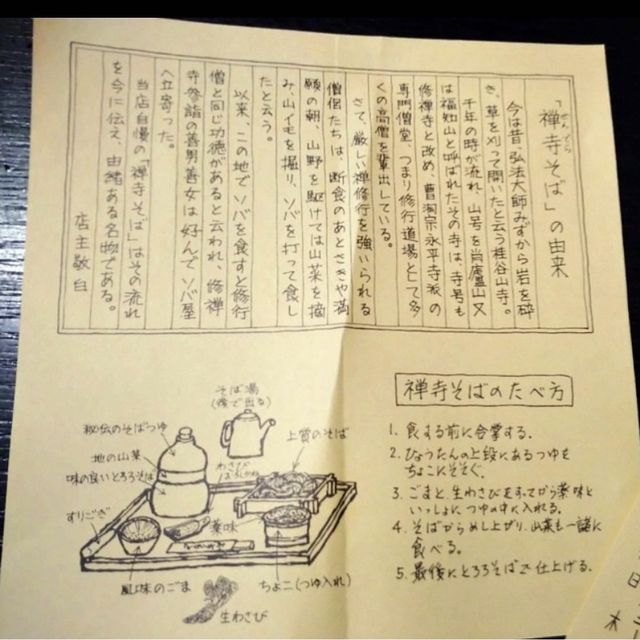 「禅寺そば」の由来
ぜんでら
今は昔、弘法大師みずから岩を砕
き、草を刈って開いたと云う桂谷山寺。
千年の時が流れ、山号を肖盧山又
は福地山と呼ばれたその寺は、寺号も
修禅寺と改め、曹洞宗永平寺派の
専門僧堂、つまり修行道場として多
くの高僧を輩出している。
さて、厳しい禅修行を強いられる
僧侶たちは、断食のあとさきや満
願の朝、山野を駆けては山菜を摘
み、山イモを掘り、ソバを打って食し
たと云う。
以来、この地でソバを食すと修行
僧と同じ功徳があると云われ、修禅
寺参詣の善男善女は好んでソバ屋
へ立寄った。
当店自慢の「禅寺そば」はその流れ
を今に伝え、由緒ある名物である。
店主敬白
禅寺そばのたべ方
1. 食する前に合掌する.
2. ひょうたんの上段にあるつゆを
ちょこにそそぐ.
3. ごまと生わさびをすってから薬味と
いっしょにつゆの中に入れる.
4. そばからめし上がり、山菜も一諸に
食べる.
5. 最後にとろろそばで仕上げる.
そば湯
(後で出る)
秘伝のそばつゆ
地の山菜
味の良いとろろそば
すりこぎ
わさび
上質のそば
薬味
風味のごま
ちょこ(つゆ入れ)
生わさび
日
木